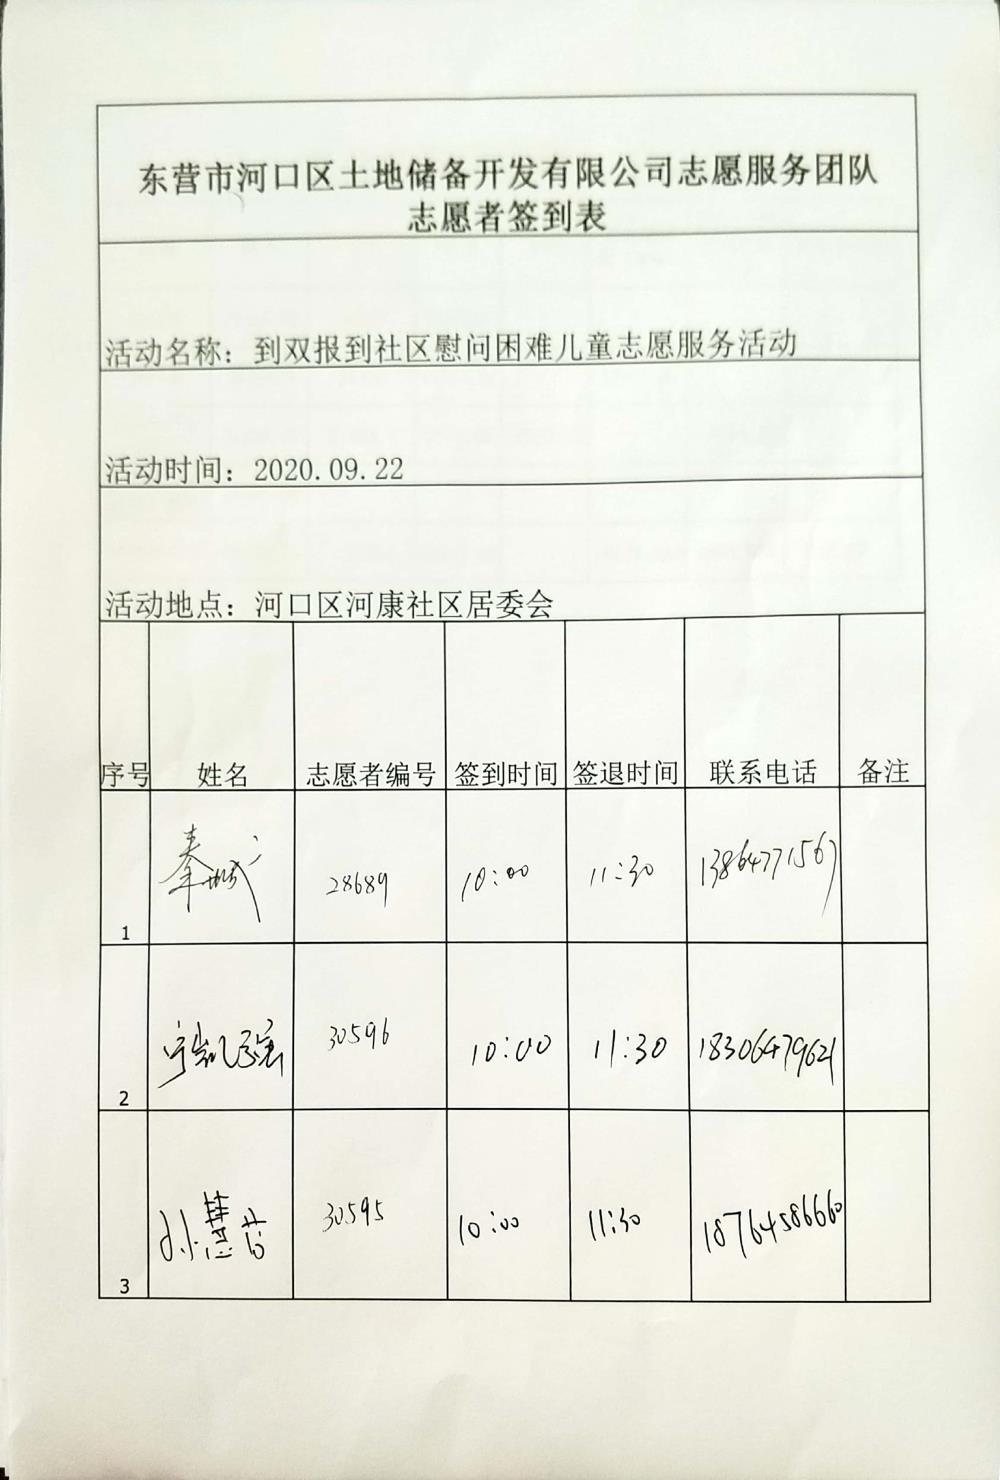 东营市河口区土地储备开发有限公司志愿服务团队
志愿者签到表
活动名称：到双报到社区慰问困难儿童志愿服务活动
活动时间：2020.09.22
活动地点：河口区河康社区居委会
序号 姓名 志愿者编号 签到时间 签退时间 联系电话 备注
1 秦城 28689 10:00 11:30 13864771567
2 30596 10:00 11:30 18306479621
3 孙慧 30595 10:00 11:30 18764586660